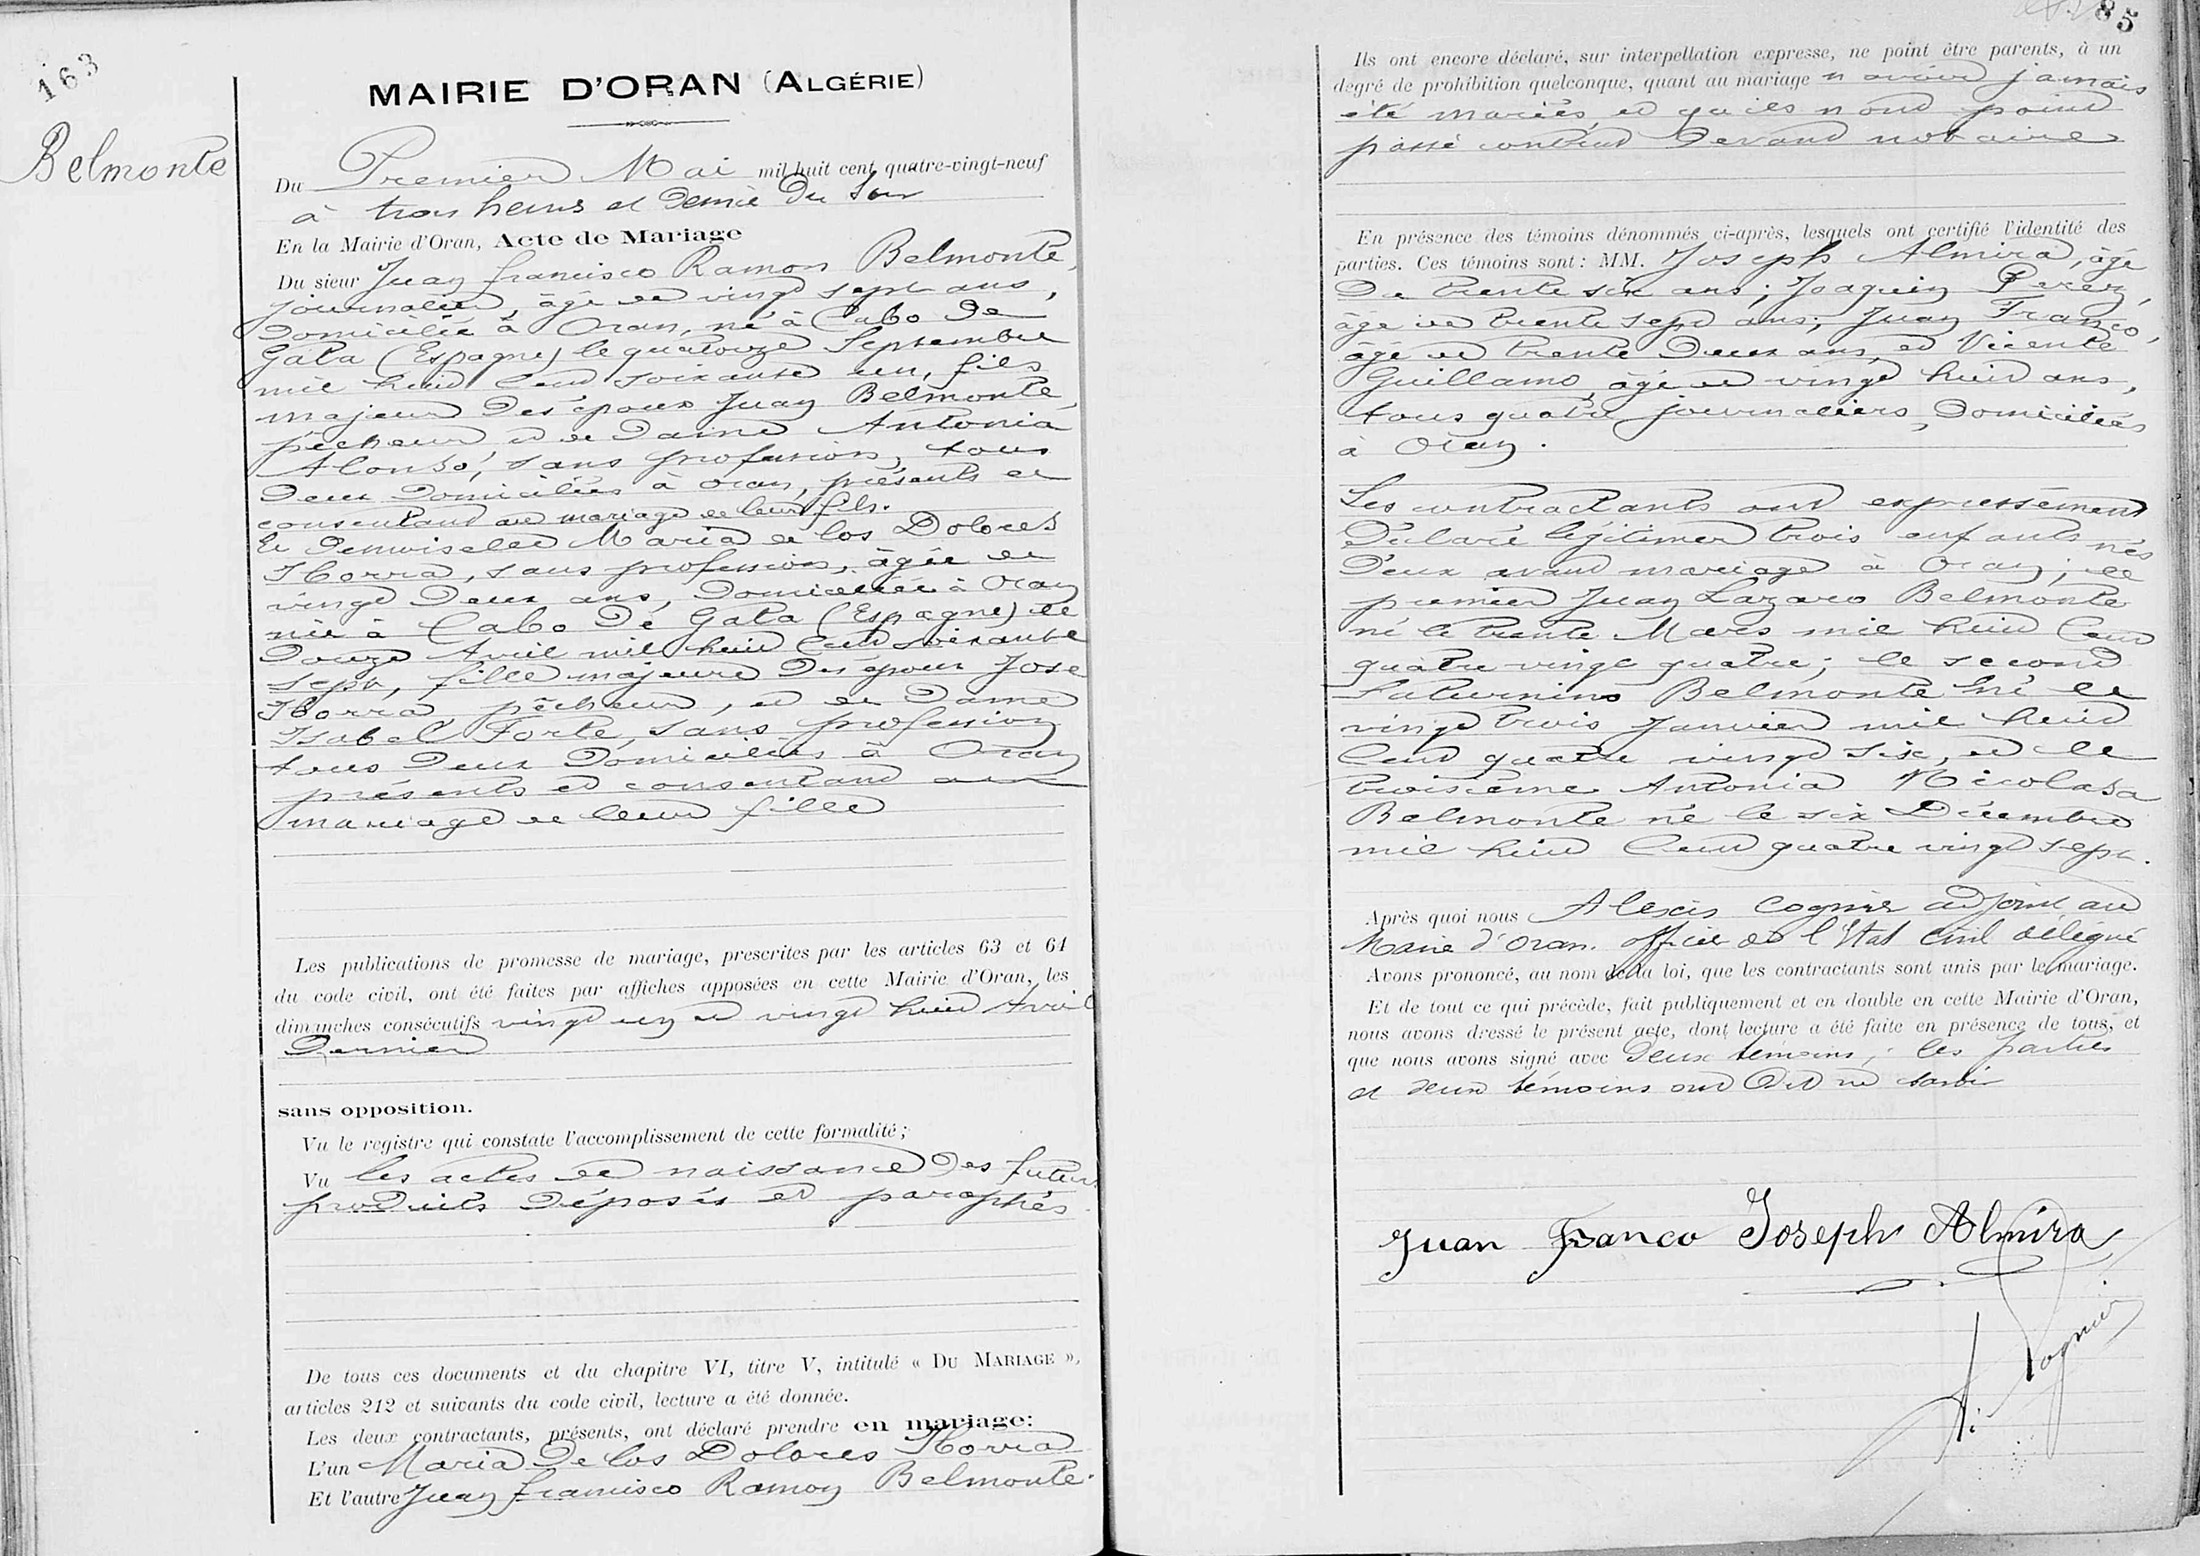 163
Belmonte
MAIRIE D'ORAN (ALGÉRIE)
Du Premier Mai mil huit cent quatre-vingt-neuf
à trois heures et demie du soir
En la Mairie d'Oran, Acte de Mariage
Du sieur Juan Francisco Ramon Belmonte,
journalier, âgé de vingt sept ans,
domicilié à Oran, né à Cabo de
Gata (Espagne) le quatorze Septembre
mil huit cent soixante un, fils
majeur des époux Juan Belmonte,
pêcheur, et de dame Antonia
Alonso, sans profession, tous
deux domiciliés à Oran, présents et
consentant au mariage de leur fils.
Et demoiselle Maria de los Dolores
Iborra, sans profession, âgée de
vingt deux ans, domiciliée à Oran
née à Cabo de Gata (Espagne) le
douze Avril mil huit cent soixante
sept, fille majeure des époux Jose
Iborra, pêcheur, et de Dame
Isabel Forte, sans profession
tous deux domiciliés à Oran
présents et consentant au
mariage de leur fille
Les publications de promesse de mariage, prescrites par les articles 63 et 64
du code civil, ont été faites par affiches apposées en cette Mairie d'Oran, les
dimanches consécutifs vingt un et vingt huit Avril
dernier
sans opposition.
Vu le registre qui constate l'accomplissement de cette formalité;
Vu les actes de naissance des futurs
produits déposés et paraphés.
De tous ces documents et du chapitre VI, titre V, intitulé « DU MARIAGE »,
articles 212 et suivants du code civil, lecture a été donnée.
Les deux contractants, présents, ont déclaré prendre en mariage:
L'un Maria de los Dolores Iborra
Et l'autre Juan Francisco Ramon Belmonte.
85
Ils ont encore déclaré, sur interpellation expresse, ne point être parents, à un
degré de prohibition quelconque, quant au mariage n'avoir jamais
été mariés, et qu'ils n'ont point
passé contrat devant notaire
En présence des témoins dénommés ci-après, lesquels ont certifié l'identité des
parties. Ces témoins sont: MM. Joseph Almira, âgé
de trente six ans; Joaquin Perez,
âgé de trente sept ans; Juan Franco,
âgé de trente deux ans, et Vicente
Guillamo, âgé de vingt huit ans,
tous quatre journaliers, domiciliés
à Oran.
Les contractants ont expressément
déclaré légitimer trois enfants nés
d'eux avant mariage à Oran; le
premier Juan Lazaro Belmonte
né le trente Mars mil huit cent
quatre vingt quatre; le second
Saturnino Belmonte né le
vingt trois Janvier mil huit
cent quatre vingt six, et le
troisième Antonia Nicolasa
Belmonte né le six Décembre
mil huit cent quatre vingt sept.
Après quoi nous Alexis Cognier adjoint au
Maire d'Oran. officier de l'Etat Civil délégué
Avons prononcé, au nom de la loi, que les contractants sont unis par le mariage.
Et de tout ce qui précède, fait publiquement et en double en cette Mairie d'Oran,
nous avons dressé le présent acte, dont lecture a été faite en présence de tous, et
que nous avons signé avec deux témoins, les parties
et deux témoins ont dit ne savoir
Juan Franco Joseph Almira
A. Cognier